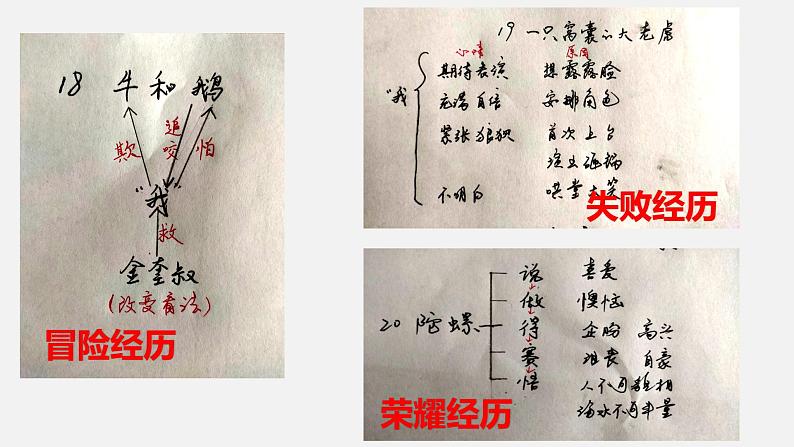 18 牛和鹅
欺 追咬 怕
"我"
救
金奎叔
(改变看法)
冒险经历
19 一只窝囊的大老虎
心情 原因
"我"
期待表演 想露露脸
充满自信 安排角色
紧张狼狈 首次上台
演出砸锅
不明白 哄堂大笑
失败经历
20 陀螺
说 喜爱
做 懊恼
得 企盼 高兴
赛 沮丧 自豪
悟 人不可貌相
海水不可斗量
荣耀经历